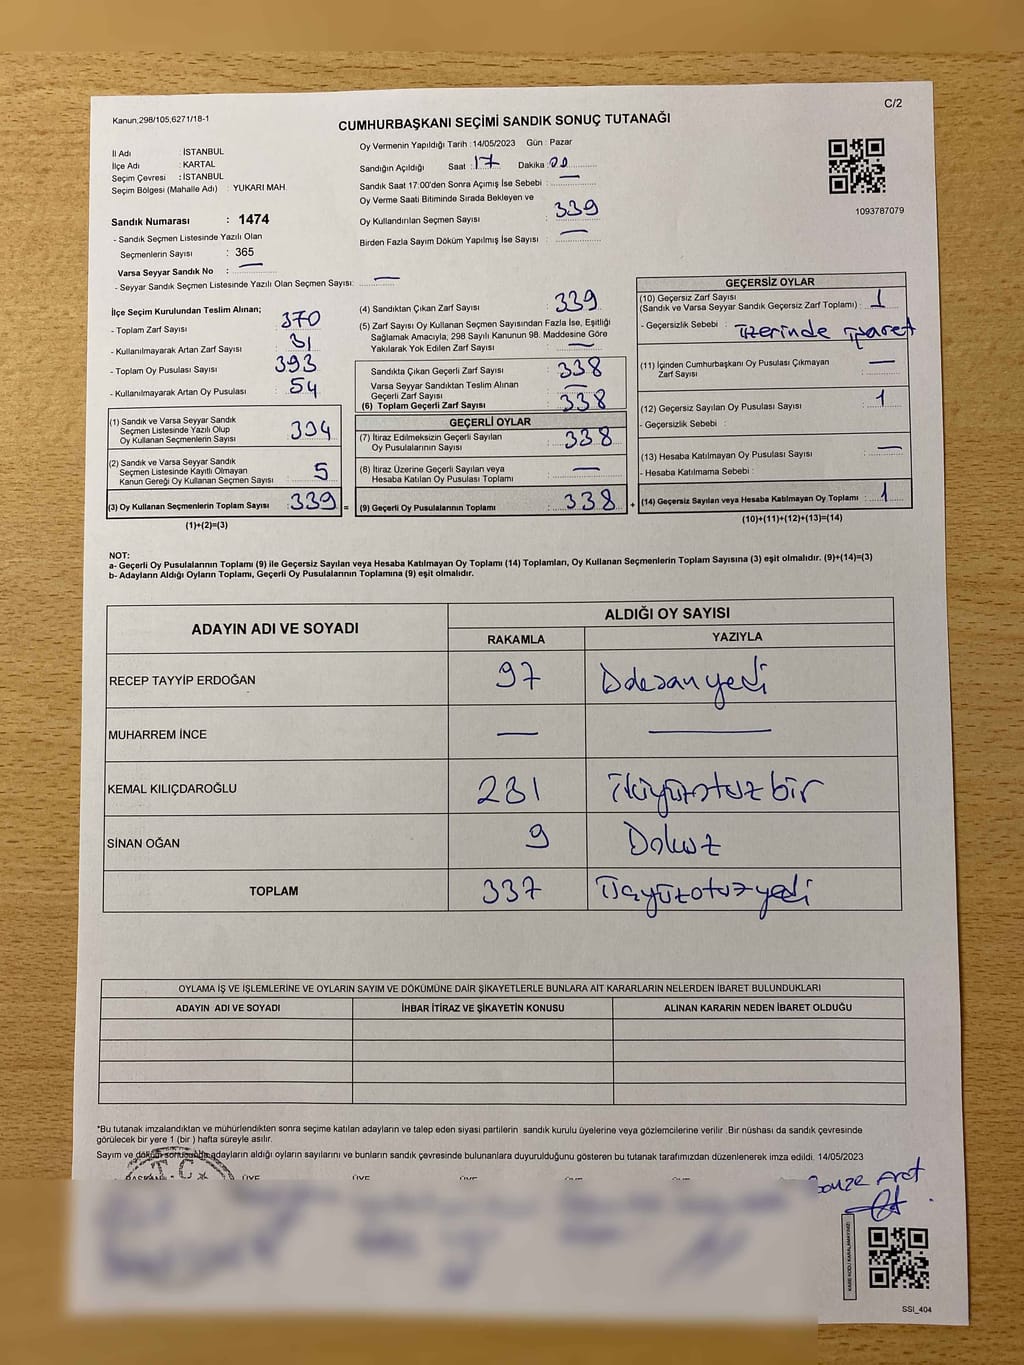 Kanun,298/105,6271/18-1
C/2
CUMHURBAŞKANI SEÇİMİ SANDIK SONUÇ TUTANAĞI
İl Adı : İSTANBUL
İlçe Adı : KARTAL
Seçim Çevresi : İSTANBUL
Seçim Bölgesi (Mahalle Adı) : YUKARI MAH.
Sandık Numarası : 1474
- Sandık Seçmen Listesinde Yazılı Olan
Seçmenlerin Sayısı : 365
Varsa Seyyar Sandık No : —
- Seyyar Sandık Seçmen Listesinde Yazılı Olan Seçmen Sayısı: —
Oy Vermenin Yapıldığı Tarih : 14/05/2023 Gün : Pazar
Sandığın Açıldığı Saat : 17 Dakika : 00
Sandık Saat 17:00'den Sonra Açımış İse Sebebi : —
Oy Verme Saati Bitiminde Sırada Bekleyen ve
Oy Kullandırılan Seçmen Sayısı : 339
Birden Fazla Sayım Döküm Yapılmış İse Sayısı : —
1093787079
İlçe Seçim Kurulundan Teslim Alınan;
- Toplam Zarf Sayısı : 370
- Kullanılmayarak Artan Zarf Sayısı : 31
- Toplam Oy Pusulası Sayısı : 393
- Kullanılmayarak Artan Oy Pusulası : 54
(1) Sandık ve Varsa Seyyar Sandık
Seçmen Listesinde Yazılı Olup
Oy Kullanan Seçmenlerin Sayısı : 334
(2) Sandık ve Varsa Seyyar Sandık
Seçmen Listesinde Kayıtlı Olmayan
Kanun Gereği Oy Kullanan Seçmen Sayısı : 5
(3) Oy Kullanan Seçmenlerin Toplam Sayısı : 339 =
(1)+(2)=(3)
(4) Sandıktan Çıkan Zarf Sayısı : 339
(5) Zarf Sayısı Oy Kullanan Seçmen Sayısından Fazla İse, Eşitliği
Sağlamak Amacıyla, 298 Sayılı Kanunun 98. Maddesine Göre
Yakılarak Yok Edilen Zarf Sayısı : —
Sandıkta Çıkan Geçerli Zarf Sayısı : 338
Varsa Seyyar Sandıktan Teslim Alınan
Geçerli Zarf Sayısı : —
(6) Toplam Geçerli Zarf Sayısı : 338
GEÇERLİ OYLAR
(7) İtiraz Edilmeksizin Geçerli Sayılan
Oy Pusulalarının Sayısı : 338
(8) İtiraz Üzerine Geçerli Sayılan veya
Hesaba Katılan Oy Pusulası Toplamı : —
(9) Geçerli Oy Pusulalarının Toplamı : 338 +
GEÇERSİZ OYLAR
(10) Geçersiz Zarf Sayısı
(Sandık ve Varsa Seyyar Sandık Geçersiz Zarf Toplamı) : 1
- Geçersizlik Sebebi : üzerinde işaret
(11) İçinden Cumhurbaşkanı Oy Pusulası Çıkmayan
Zarf Sayısı : —
(12) Geçersiz Sayılan Oy Pusulası Sayısı : 1
- Geçersizlik Sebebi :
(13) Hesaba Katılmayan Oy Pusulası Sayısı : —
- Hesaba Katılmama Sebebi :
(14) Geçersiz Sayılan veya Hesaba Katılmayan Oy Toplamı : 1
(10)+(11)+(12)+(13)=(14)
NOT:
a- Geçerli Oy Pusulalarının Toplamı (9) ile Geçersiz Sayılan veya Hesaba Katılmayan Oy Toplamı (14) Toplamları, Oy Kullanan Seçmenlerin Toplam Sayısına (3) eşit olmalıdır. (9)+(14)=(3)
b- Adayların Aldığı Oyların Toplamı, Geçerli Oy Pusulalarının Toplamına (9) eşit olmalıdır.
ADAYIN ADI VE SOYADI ALDIĞI OY SAYISI
RAKAMLA YAZIYLA
RECEP TAYYİP ERDOĞAN 97
MUHARREM İNCE — —
KEMAL KILIÇDAROĞLU 231 ikiyüzotuz bir
SİNAN OĞAN 9 Dokuz
TOPLAM 337 Üçyüzotuzyedi
OYLAMA İŞ VE İŞLEMLERİNE VE OYLARIN SAYIM VE DÖKÜMÜNE DAİR ŞİKAYETLERLE BUNLARA AİT KARARLARIN NELERDEN İBARET BULUNDUKLARI
ADAYIN ADI VE SOYADI İHBAR İTİRAZ VE ŞİKAYETİN KONUSU ALINAN KARARIN NEDEN İBARET OLDUĞU
*Bu tutanak imzalandıktan ve mühürlendikten sonra seçime katılan adayların ve talep eden siyasi partilerin sandık kurulu üyelerine veya gözlemcilerine verilir .Bir nüshası da sandık çevresinde
görülecek bir yere 1 (bir ) hafta süreyle asılır.
Sayım ve döküm sonucunda adayların aldığı oyların sayılarını ve bunların sandık çevresinde bulunanlara duyurulduğunu gösteren bu tutanak tarafımızdan düzenlenerek imza edildi. 14/05/2023
T.C
BAŞKAN ÜYE ÜYE ÜYE ÜYE
KARE KODU KARALAMAYINIZ!
SSI_404